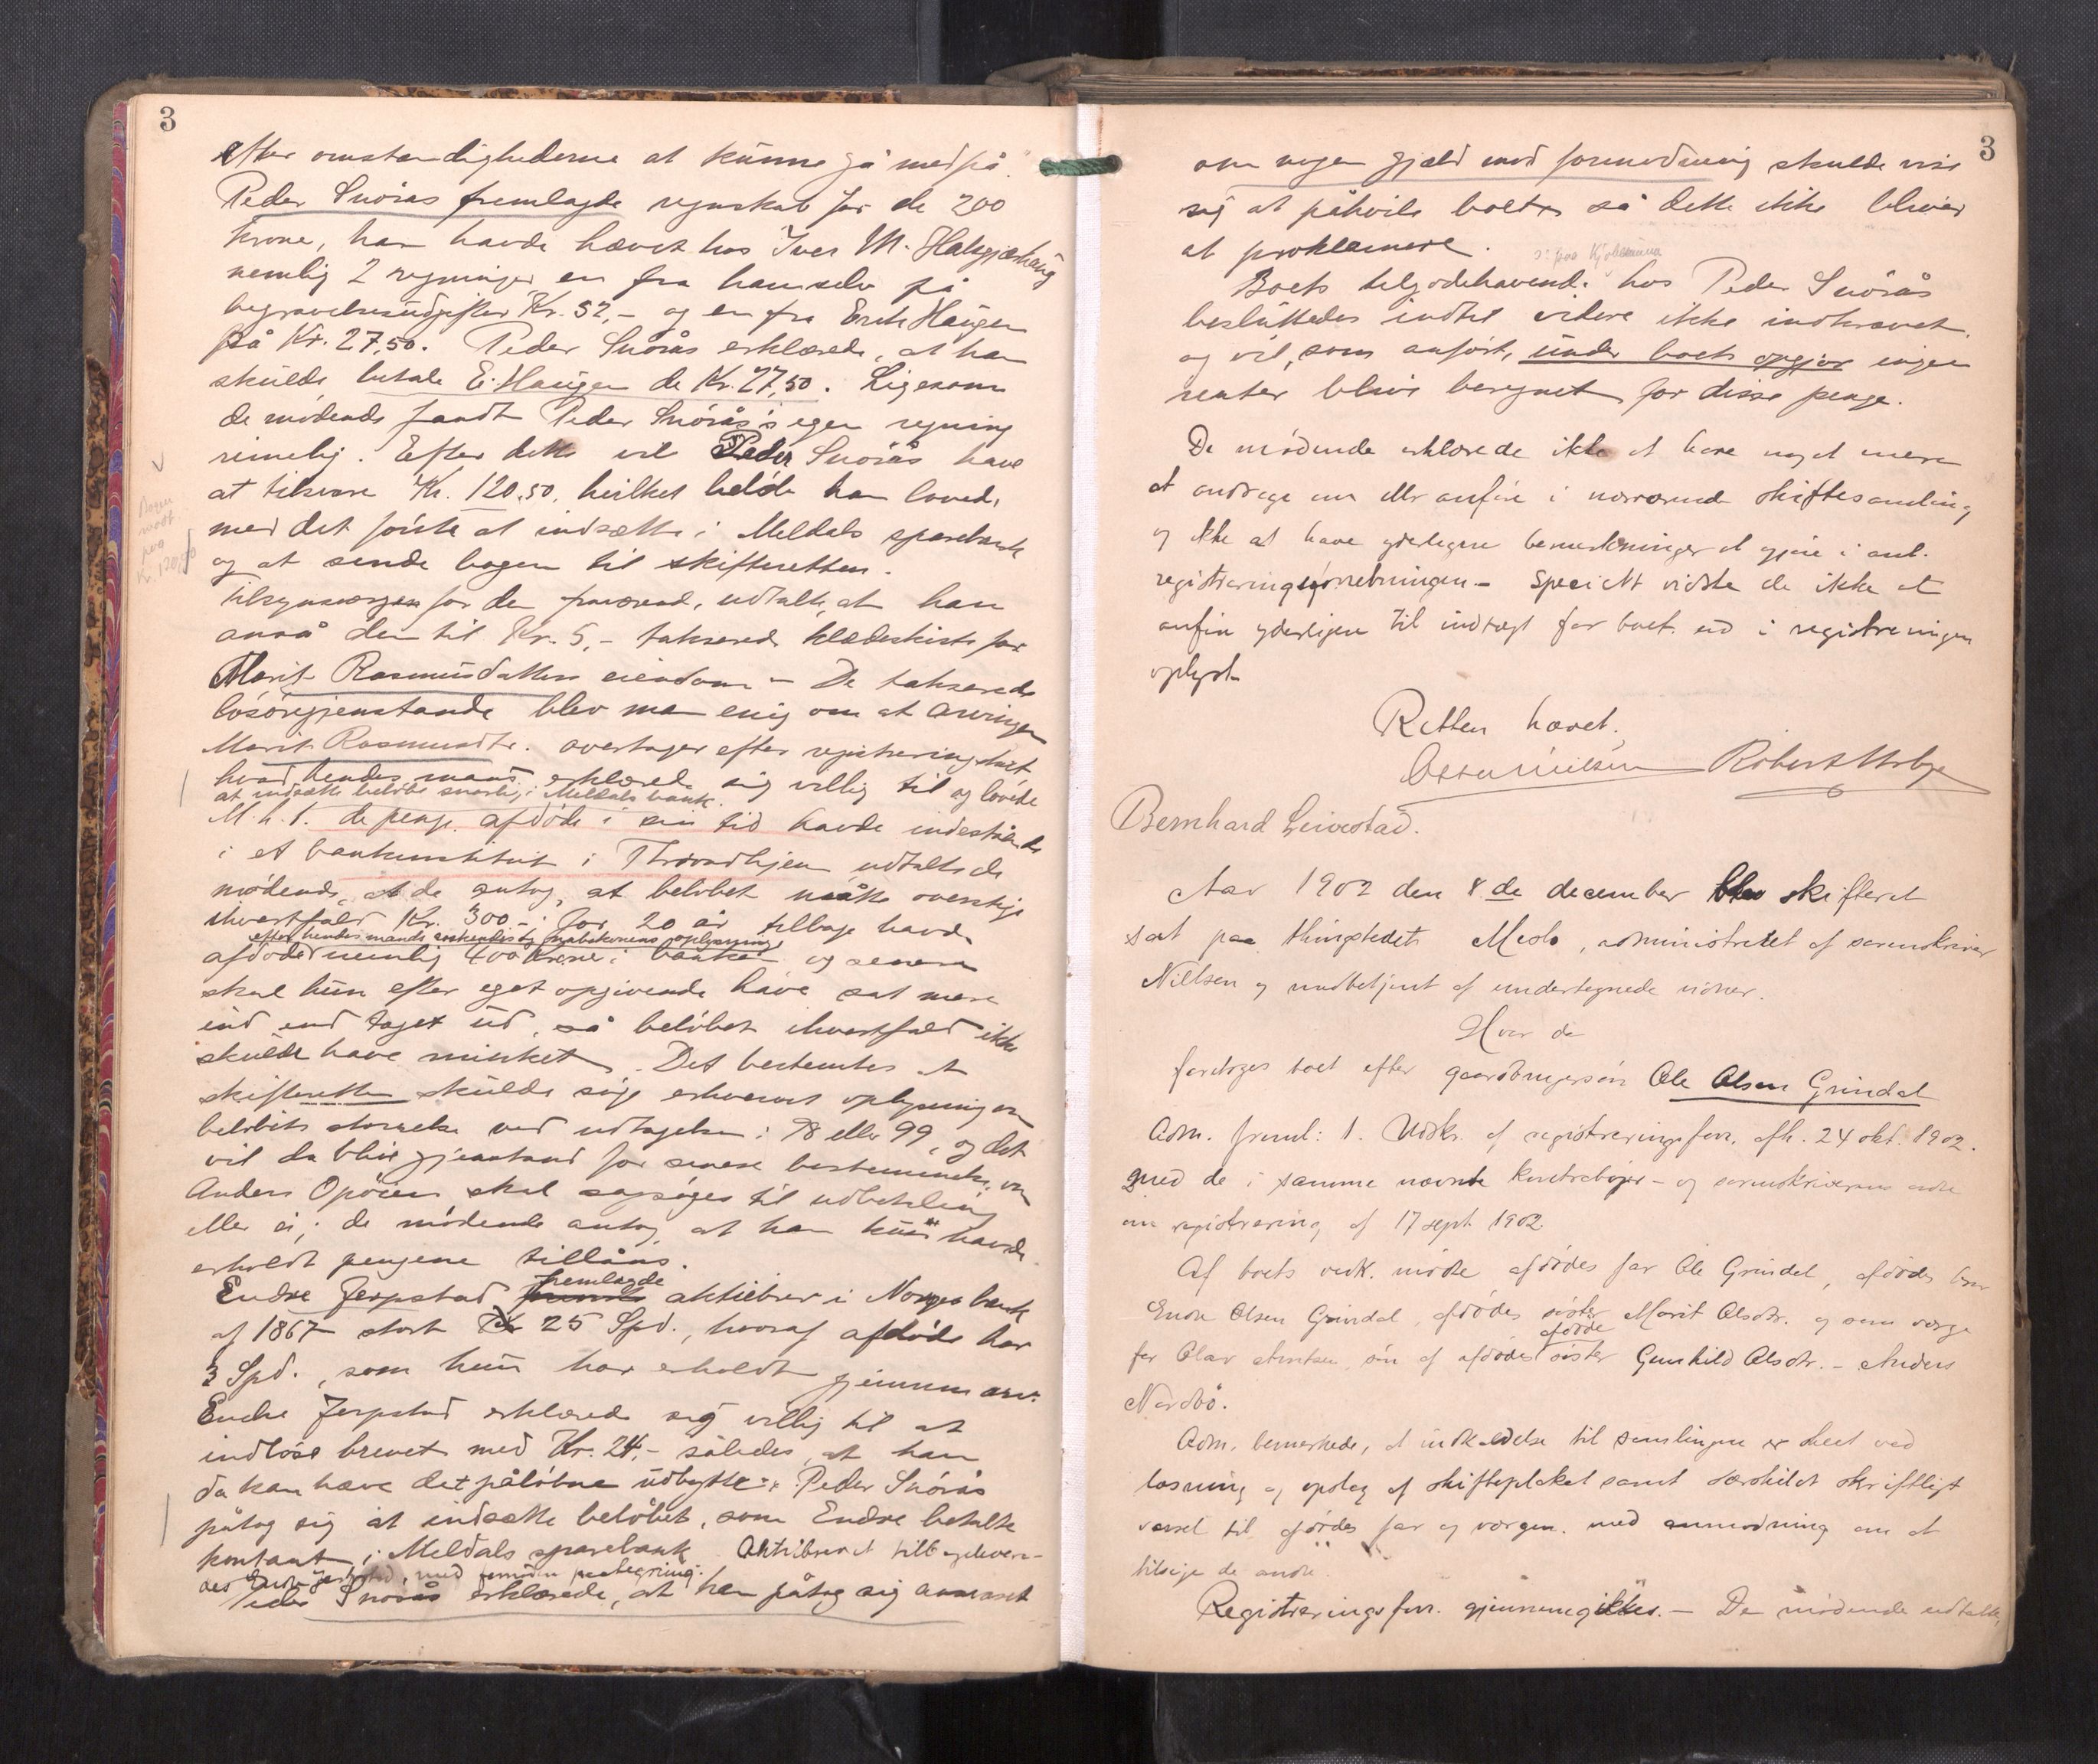 3
efter omstændighederne at kunne gå med på.
Peder Snöäs fremlagde regnskab for de 200
krone, han havde hævet hos Iver M. Halsgjærhaug
nemlig 2 regninger en fra ham selv på
begravelsesudgifter Kr. 52,- og en fra Erik Haugen
på Kr. 27,50. Peder Snöås erklærede, at han
skulde betale E. Haugen de Kr. 27,50. Ligesom
de mødende fandt Peder Snöås's egen regning
rimelig. Efter dette vil Peder Snöås have
at tilsvare Kr. 120,50, hvilket beløb han lovede
med det første at indsætte i Meldals sparebank
og at sende bogen til skifteretten.
Bogen
modt.
paa
Kr. 120,50
Tilsynsværgen for den fraværende, udtalte, at han
anså den til Kr. 5,- takserede klædeskiste for
Marit Rasmusdatters eiendom - De takserede
løsøregjenstande blev man enig om at arvingen
Marit Rasmusdtr. overtager efter registreringstaxt
hvad hendes mand erklærede sig villig til og lovede
at indsætte beløbet snarlig i Meldals bank.
M. h. t. de penge afdöde i sin tid havde indestående
i et bankinstitut i Throndhjem udtalte de
mödende, at de antog, at belöbet måtte overstige
ihvertfald Kr. 300,-; for 20 år tilbage havde
efter hendes mands
oplysning
afdöde nemlig 400 kroner i banken og senere
skal hun efter eget opgivende have sat mere
ind end taget ud, så belöbet ihvertfald ikke
skulde have minket. Det bestemtes at
skifteretten skulde söge erhvervet oplysning om
belöbets störrelse ved udtagelsen i 98 eller 99, og det
vil da blive gjenstand for senere bestemmelse, om
Anders Opöien skal sagsöges til udbetaling
eller ei; de mödende antog, at han kun havde
erholdt pengene tillåns.
Endre Jerpstad fremlagde aktiebrev i Norges bank
af 1867 stort 25 Spd., hvoraf afdöde har
3 Spd., som hun har erholdt gjennem arv.
Endre Jerpstad erklærede sig villig til at
indlöse brevet med Kr. 24,- således, at han
da kan hæve det påløbne udbytte. Peder Snöås
påtog sig at indsætte belöbet, som Endre betalte
kontant, i Meldals sparebank. Aktiebrevet tilbagelevere-
des Endre Jerpstad, med fornöden paategning.
Peder Snöås erklærede, at han påtog sig ansvaret
3
om nogen gjæld mod formodning skulde vise
sig at påhvile boet, så dette ikke bliver
at proklamere.
Boets tilgodehavende hos Peder Snöås
besluttedes indtil videre ikke indkrævet
og vil, som anført, under boets opgjør ingen
renter blive beregnet for disse penge.
De mödende erklærede ikke at have noget mere
at andrage om eller anföre i nærværende skiftesamling
og ikke at have yderligere bemerkninger at gjøre i anl.
registreringsforretningen - Specielt vidste de ikke at
anføre yderligere til indtægt for boet end i registreringen
oplyst.
Retten hævet.
Bernhard Leivestad.
Aar 1902 den 8de december blev skifteret
sat paa thingstedet Meslo, administreret af sorenskriver
Nielsen og medbetjent af undertegnede vidner.
Hvor da
foretoges boet efter gaardbrugersön Ole Olsen Grindal
Adm. freml: 1. Udskr. af registreringsforr. afh. 24 okt. 1902.
med de i samme nævnte kontrabøger - og sorenskriverens ordre
om registrering af 17 sept 1902.
Af boets vedk. mödte afdödes far Ole Grindal, afdödes bror
Endre Olsen Grindal, afdödes söster Marit Olsdtr. og som værge
for Olav Arntsen sön af afdödes afdöde söster Gunhild Olsdtr. - Anders
Nordbö.
Adm. bemerkede, at indkaldelse til samlingen er skeet ved
læsning og opslag af skifteplakat samt særskildt skriftligt
varsel til afdödes far og værgen, med anmodning om at
tilsige de andre.
Registreringsforr. gjennemgikkes. - De mödende udtalte,